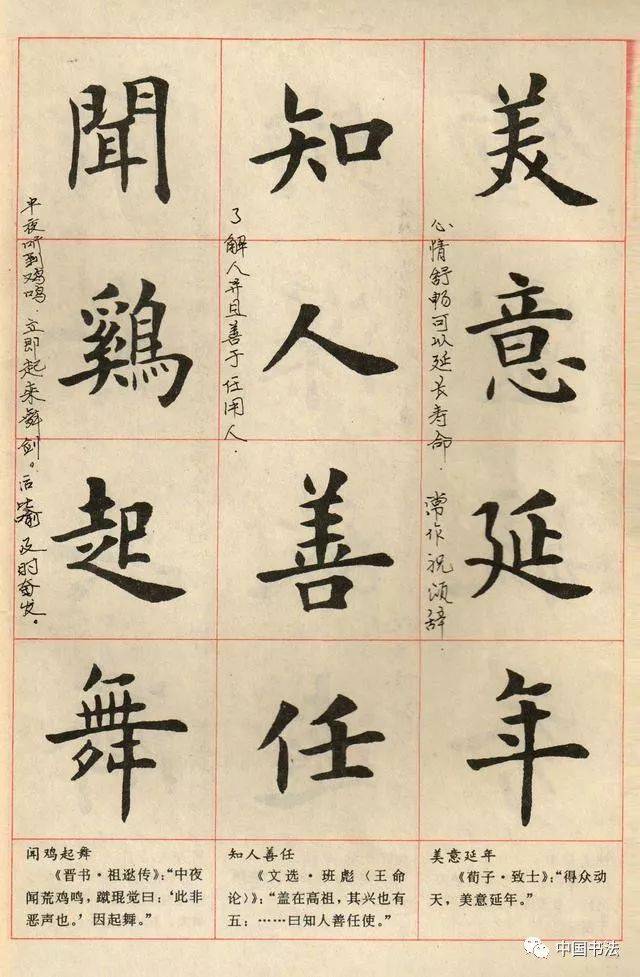 美意延年
心情舒畅可以延长寿命. 常作祝颂辞.
知人善任
了解人并且善于任用人.
聞鷄起舞
半夜听到鸡鸣.立即起来舞剑。后比喻及时奋发。
美意延年
《荀子·致士》:“得众动
天，美意延年。”
知人善任
《文选·班彪〈王命
论〉》:“盖在高祖，其兴也有
五：……曰知人善任使。”
闻鸡起舞
《晋书·祖逖传》:“中夜
闻荒鸡鸣，蹴琨觉曰：‘此非
恶声也。’因起舞。”
中国书法